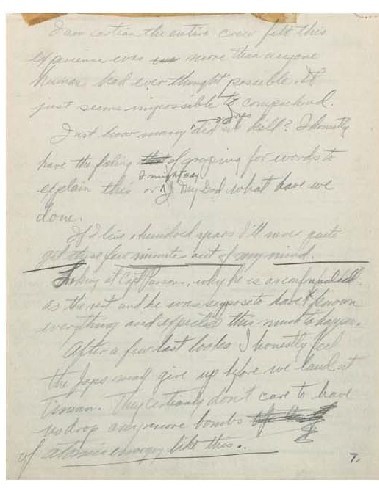 I am certain the entire crew felt this
experience was more than anyone
human had ever thought possible. It
just seems impossible to comprehend.
Just how many did we kill? I honestly
have the feeling of groping for words to
explain this or I might say My God what have we
done.
If I live a hundred years I'll never quite
get these few minutes out of my mind.
Looking at Capt Parsons, why he is as confounded
as the rest and he was supposed to have known
everything and expected this to happen.
After a few last looks I honestly feel
the Japs may give up before we land at
Tinian. They certainly don't care to have
us drop any more bombs
of atomic energy like this.
7.